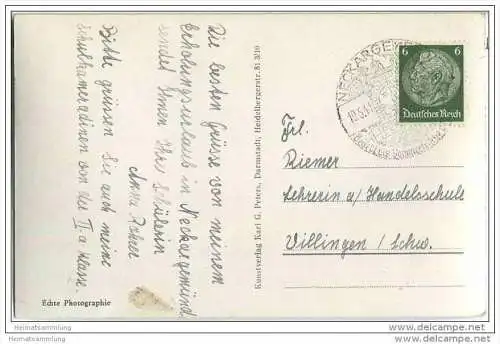 Die besten Grüsse von meinem
Erholungsurlaub in Neckargemünd
sendet Ihnen Ihre Schülerin
Anne
Bitte grüssen Sie auch meine
Schulkameradinen von der II.a Klasse.
Echte Photographie
Kunstverlag Karl G. Peters, Darmstadt, Heidelbergerstr. 81 3/10
NECKARGEM
6 6
Deutsches Reich
Frl.
Riemer
Lehrerin a/ Handelsschule
Villingen / Schw.
Heimatsammlung
Heimatsammlung
http://www.delcampe.net
http://www.delcampe.net